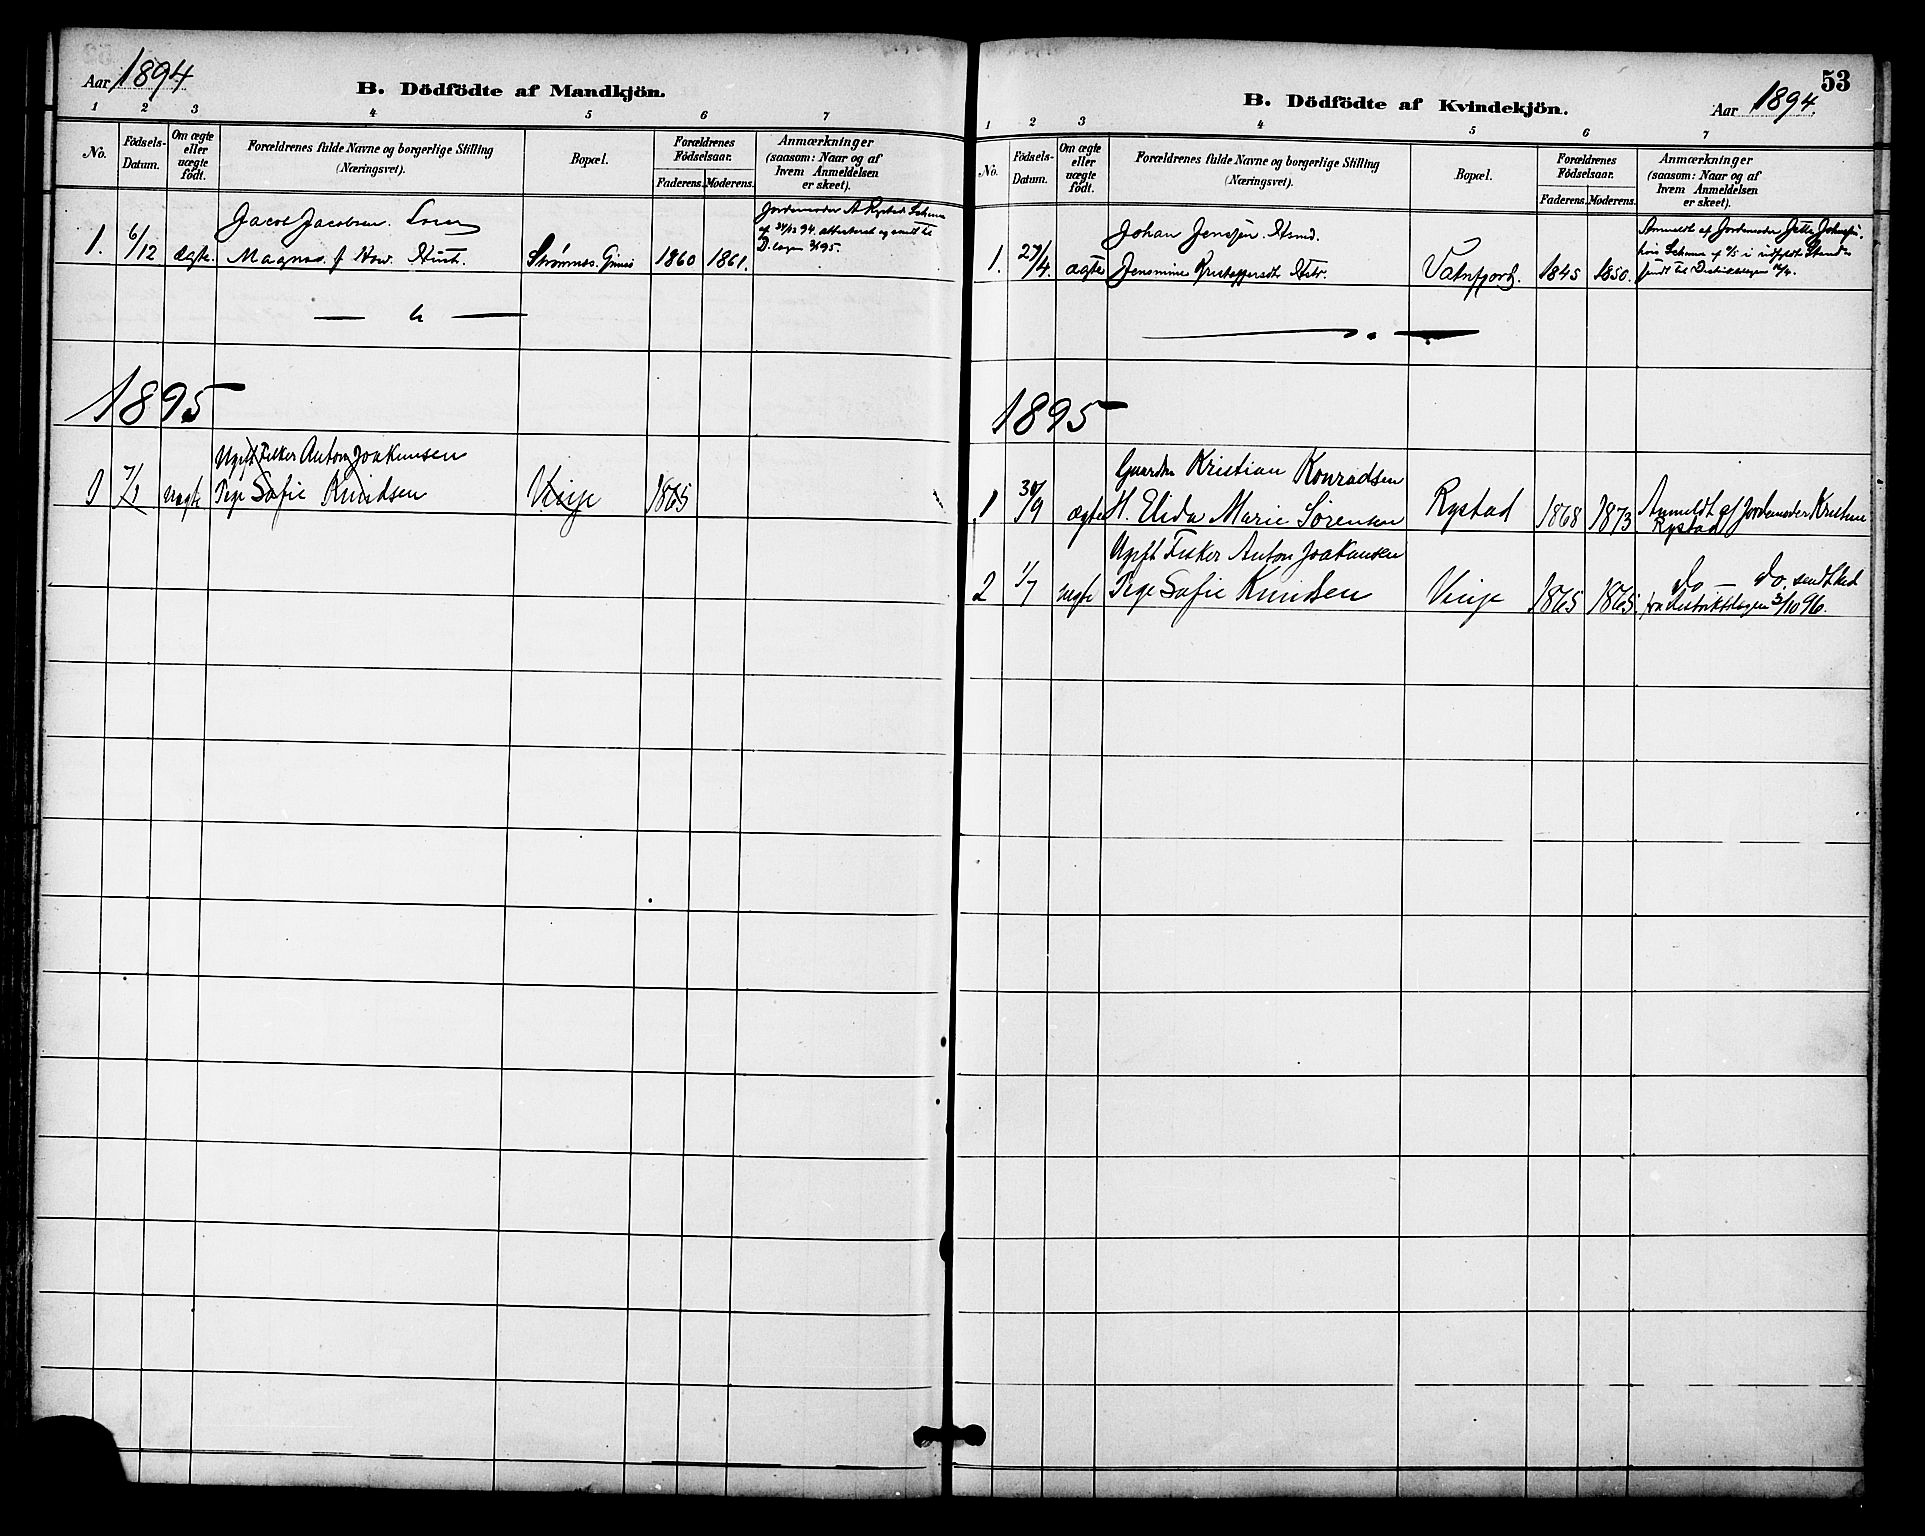 Aar 1894
B. Dödfödte af Mandkjön.
1 2 3 4 5 6 7
No.
Födsels-
Datum.
Om ægte
eller
uægte
födt.
Forældrenes fulde Navne og borgerlige Stilling
(Næringsvei).
Bopæl.
Forældrenes
Födselsaar.
Faderens. Moderens.
Anmærkninger
(saasom: Naar og af
hvem Anmeldelsen
er skeet).
Jacob Jacobsen
1. 6/12 ægte. Magnas f How. Hust. Strømnes. Gimsø 1860 1861.
Jordemoder A Rystad Schema
af 31/12 94. attesteret og sendt til
D. lægen 3/1 95.
1895
Ugift Fisker Anton Joakimsen
1 7/1 uægte Pige Sofie Knudsen Vinje 1865
53
B. Dödfödte af Kvindekjön.
Aar 1894.
1 2 3 4 5 6 7
No.
Födsels-
Datum.
Om ægte
eller
uægte
födt.
Forældrenes fulde Navne og borgerlige Stilling
(Næringsvei).
Bopæl.
Forældrenes
Födselsaar.
Faderens. Moderens.
Anmærkninger
(saasom: Naar og af
hvem Anmeldelsen
er skeet).
Johan Jensen. Hsmd.
1. 27/4. ægte Jensmine Kristoffersdt Hstr. Vatnfjord. 1845 1850.
Anmeldt af Jordemoder Jette
hvis Schema af i udfyldt Stand
sendt til Distriktslægen
1895
Gaardm Kristian Konradsen
1 30/9 ægte H. Elida Marie Sörensen Rystad 1868 1873
Anmeldt af Jordemoder Kristine
Rystad
Ugift Fisker Anton Joakimsen
2 1/7 uægte Pige Sofie Knudsen Vinje 1865 1865
do — do. sendt
fra Distriktslægen 3/10 96.